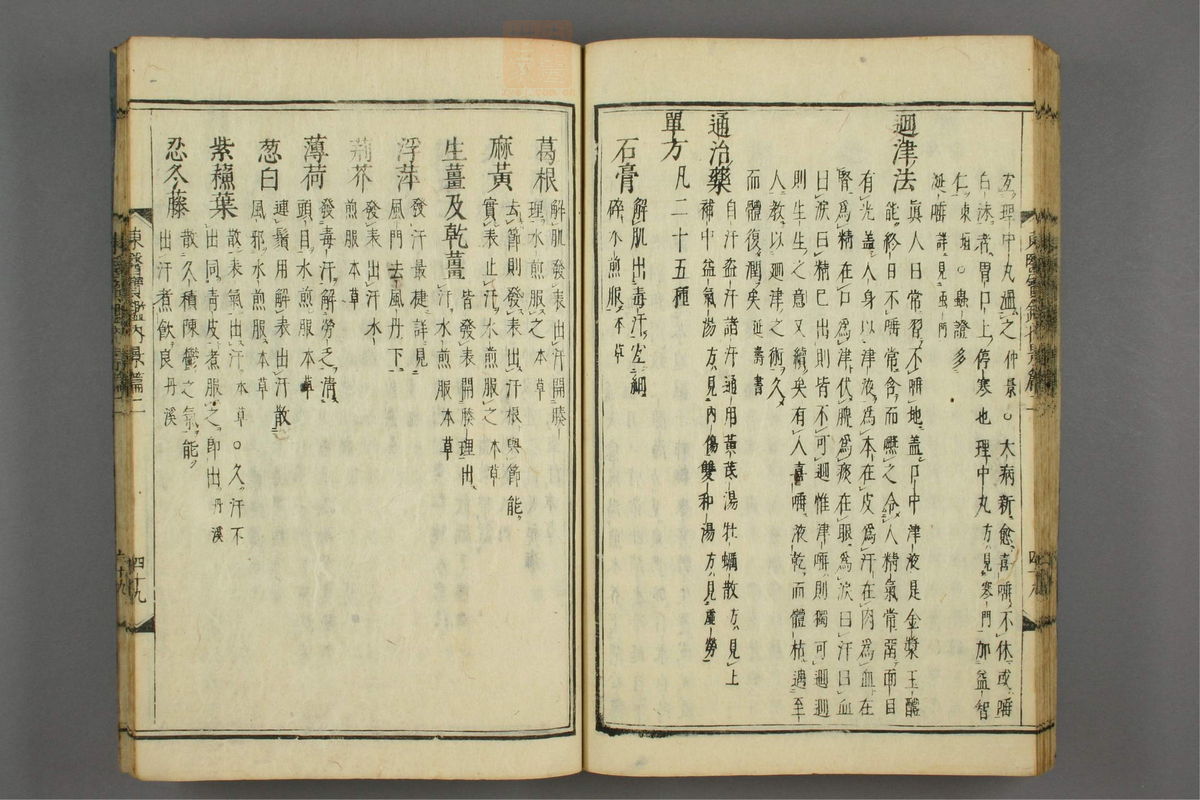 方理中丸溫之仲景○大病新愈喜唾不休或唾
白沫者胃口上停寒也理中丸方見寒門加益智
仁東垣○蟲證多
涎唾詳見虫門
廻津法
眞人曰常習不唾地盖口中津液是金漿玉醴
能終日不唾常含而嚥之令人精氣常留面目
有光盖人身以津液爲本在皮爲汗在肉爲血在
腎爲精在口爲津伏脾爲痰在眼爲淚曰汗曰血
曰淚曰精已出則皆不可廻惟津唾則獨可廻廻
則生生之意又續矣有人喜唾液乾而體枯遇至
人教以廻津之術久
而體復潤矣延壽書
通治藥
自汗盗汗諸汗通用黃芪湯牡蠣散方見上
補中益氣湯方見內傷雙和湯方見虛勞
單方凡二十五種
石膏
解肌出毒汗細
碎水煎服本草
葛根
解肌發表出汗開腠
理水煎服之本草
麻黃
去節則發表出汗根與節能
實表止汗水煎服之本草
生薑及乾薑
皆發表開腠理出
汗煎服本草
浮萍
發汗最捷詳見
風門去風丹下
荊芥
發表出汗水
煎服本草
薄荷
發毒汗解勞乏淸
頭目水煎服本草
葱白
連鬚用解表出汗散
風邪水煎服本草
紫蘓葉
散表氣出汗水煎服本草○久汗不
出同靑皮煮服之卽出丹溪
忍冬藤
散久積陳鬱之氣能
出汗煮飮良丹溪
東醫寶鑑內景篇二
四十九